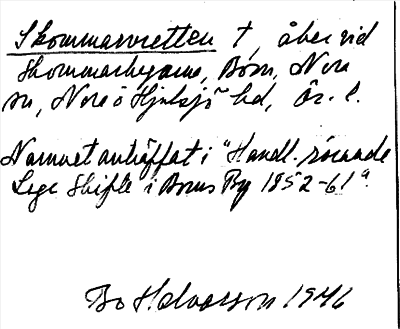 Skommarvretten †, åker vid
Skommarbygarne, Bom, Nora
sn, Nora o Hjulsjö hd, Ör. l.
Namnet anträffat i "Handl. rörande
Lage Skifte i Boms By 1852-61".
Bo Halvarson 1946